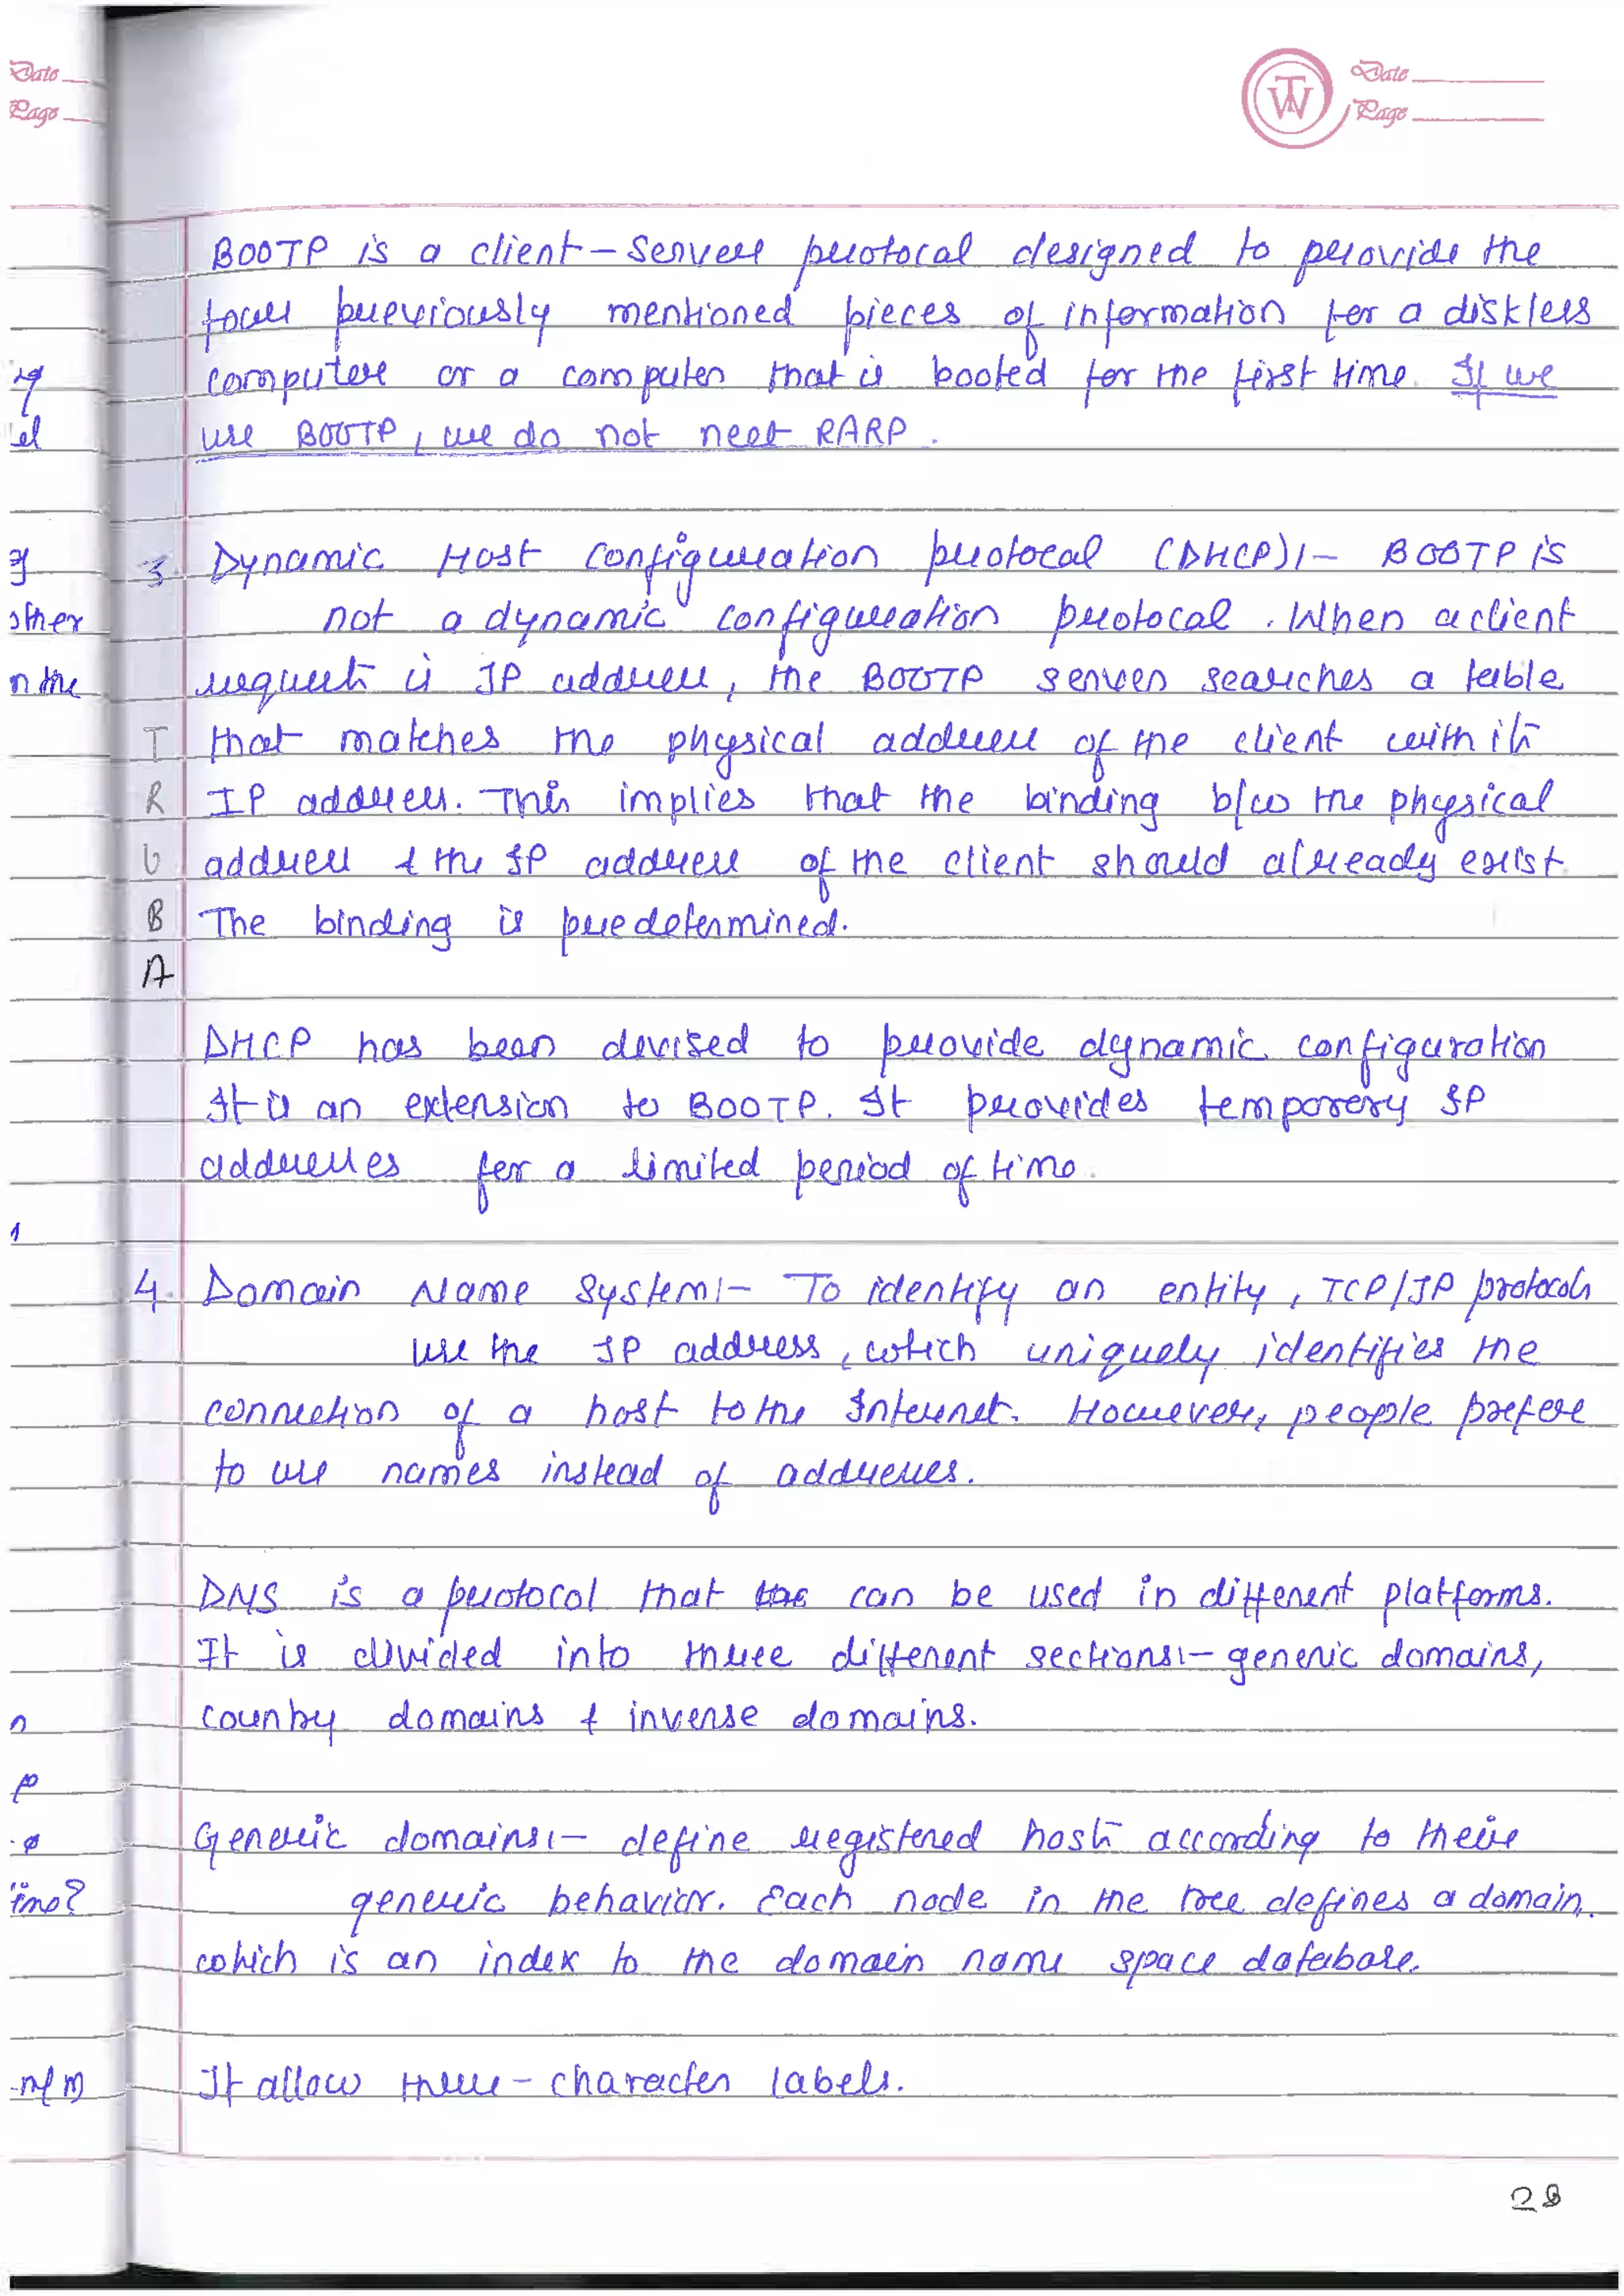 Date
Page
TW
Date
Page
BOOTP is a client-server protocal designed to provide the
four previously mentioned pieces of information for a diskless
computer or a computer that is booted for the first time. If we
use BOOTP, we do not neet RARP.
3. Dynamic Host Configuration protocal (DHCP):- BOOTP is
not a dynamic configuration protocal. When a client
request is IP address, the BOOTP server searches a table
that matches the physical address of the client with its
IP address. This implies that the binding b/w the physical
address & the IP address of the client should already exist.
The binding is predetermined.
T
R
U
B
A
DHCP has been devised to provide dynamic configuration
It is an extension to BOOTP. It provides temporery IP
addresses for a limited period of time.
4. Domain Name System:- To identify an entity, TCP/IP protocols
use the IP address, which uniquely identifies the
connection of a host to the Internet. However, people prefer
to use names instead of addresses.
DNS is a protocol that can be used in different platforms.
It is divided into three different sections:- generic domains,
country domains & inverse domains.
Generic domains:- define registered hosts according to their
generic behavior. Each node in the tree defines a domain,
which is an index to the domain name space database.
It allow three-character labels.
28
el
other
n the